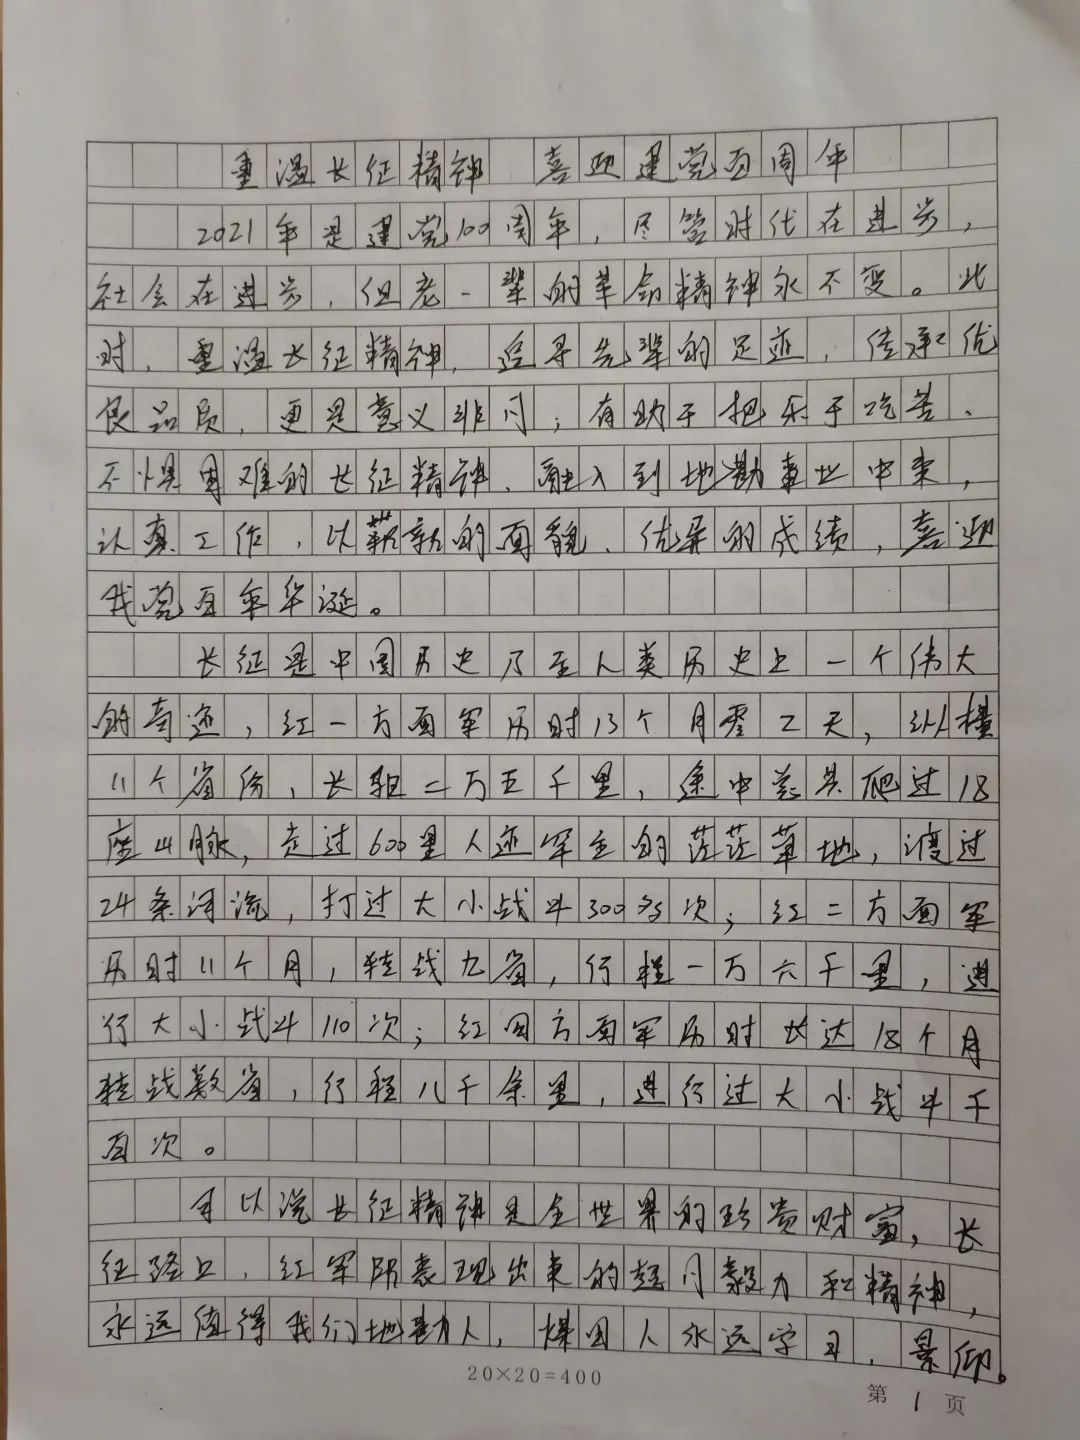 重温长征精神 喜迎建党百周年
2021年是建党100周年，尽管时代在进步，
社会在进步，但老一辈的革命精神永不变。此
时，重温长征精神，追寻先辈的足迹，传承优
良品质，更是意义非凡；有助于把乐于吃苦、
不惧困难的长征精神、融入到地勘事业中来，
认真工作，以崭新的面貌、优异的成绩，喜迎
我党百年华诞。
长征是中国历史乃至人类历史上一个伟大
的奇迹，红一方面军历时13个月零二天，纵横
11个省份，长驱二万五千里，途中总共爬过18
座山脉，走过600里人迹罕至的茫茫草地，渡过
24条河流，打过大小战斗300多次；红二方面军
历时11个月，转战九省，行程一万六千里，进
行大小战斗110次；红四方面军历时长达18个月
转战数省，行程八千余里，进行过大小战斗千
百次。
可以说长征精神是全世界的珍贵财富，长
征路上，红军所表现出来的超凡毅力和精神，
永远值得我们地勘人，煤田人永远学习，景仰。
20×20=400
第 1 页